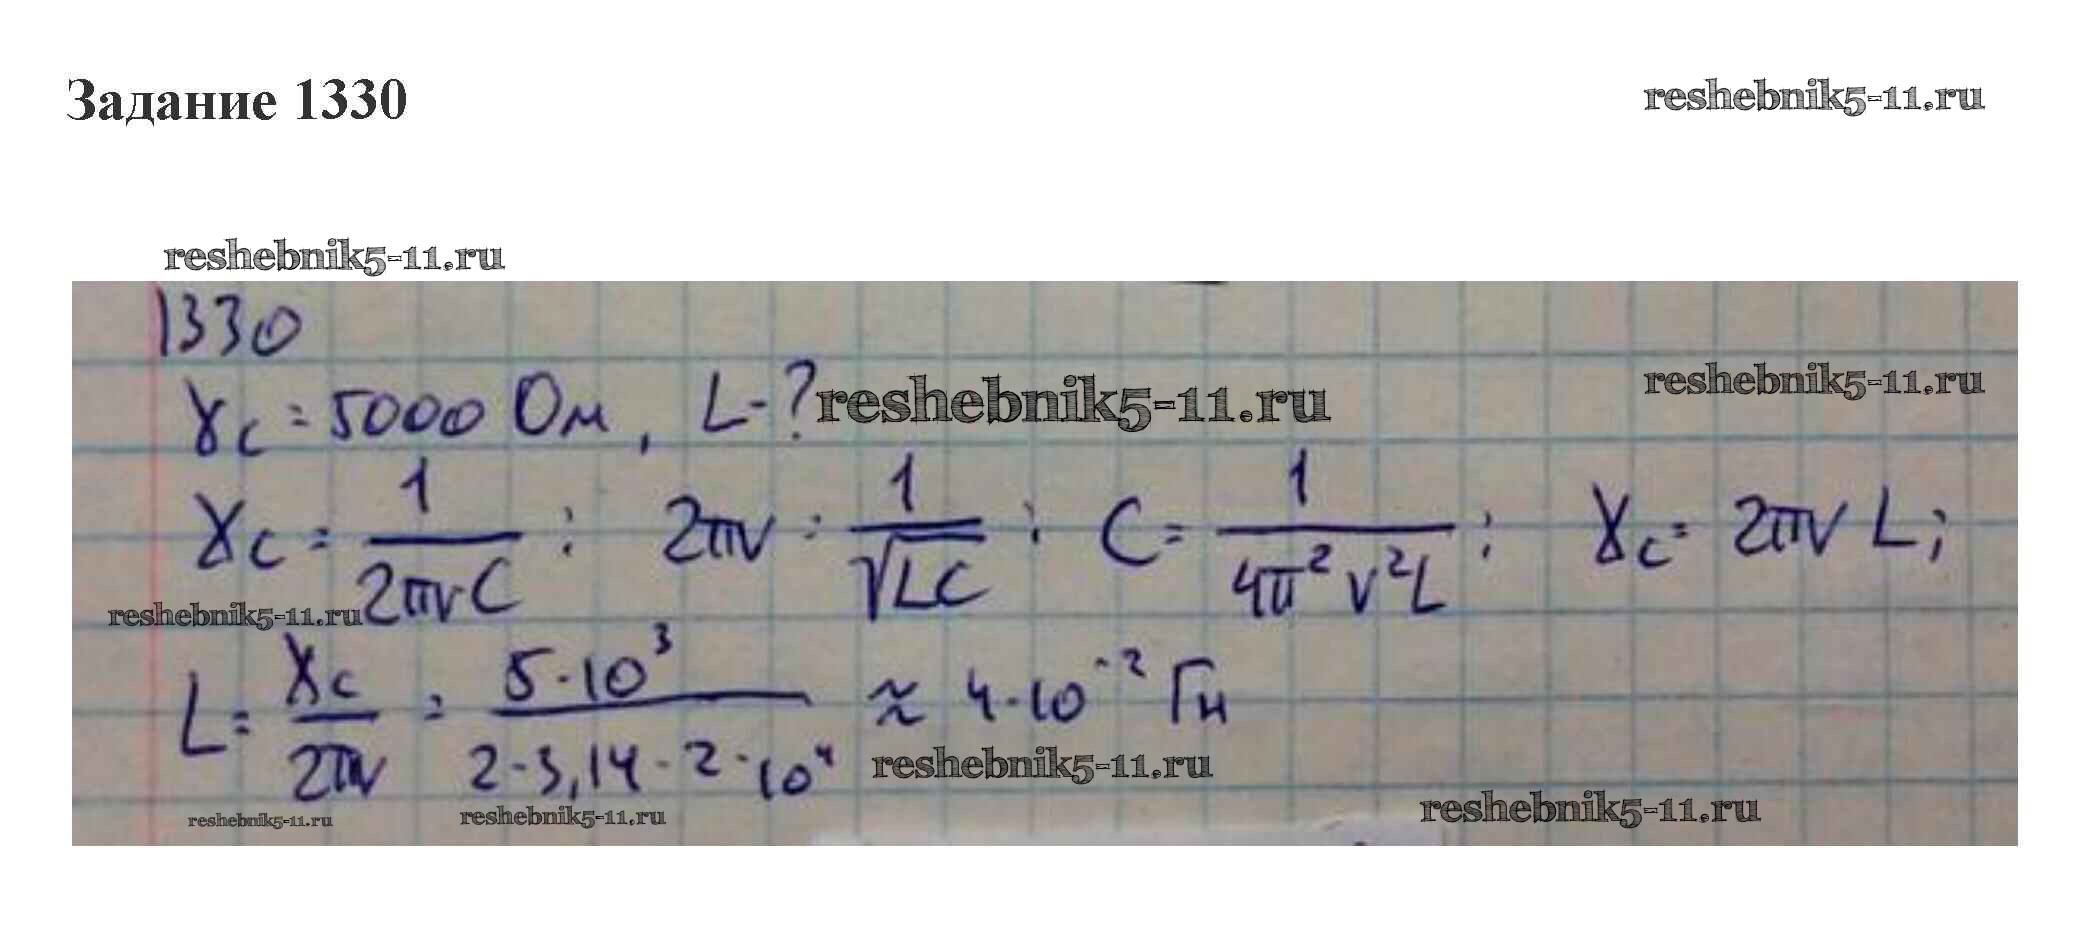 Задание 1330
reshebnik5-11.ru
reshebnik5-11.ru
1330
Xc = 5000 Ом, L-?
reshebnik5-11.ru
reshebnik5-11.ru
Xc = 1/(2πνC) ; 2πν = 1/√LC ; C = 1/(4π²ν²L) ; Xc = 2πνL;
reshebnik5-11.ru
L = Xc/(2πν) = 5·10³/(2·3,14·2·10⁴) ≈ 4·10⁻² Гн
reshebnik5-11.ru
reshebnik5-11.ru
reshebnik5-11.ru
reshebnik5-11.ru